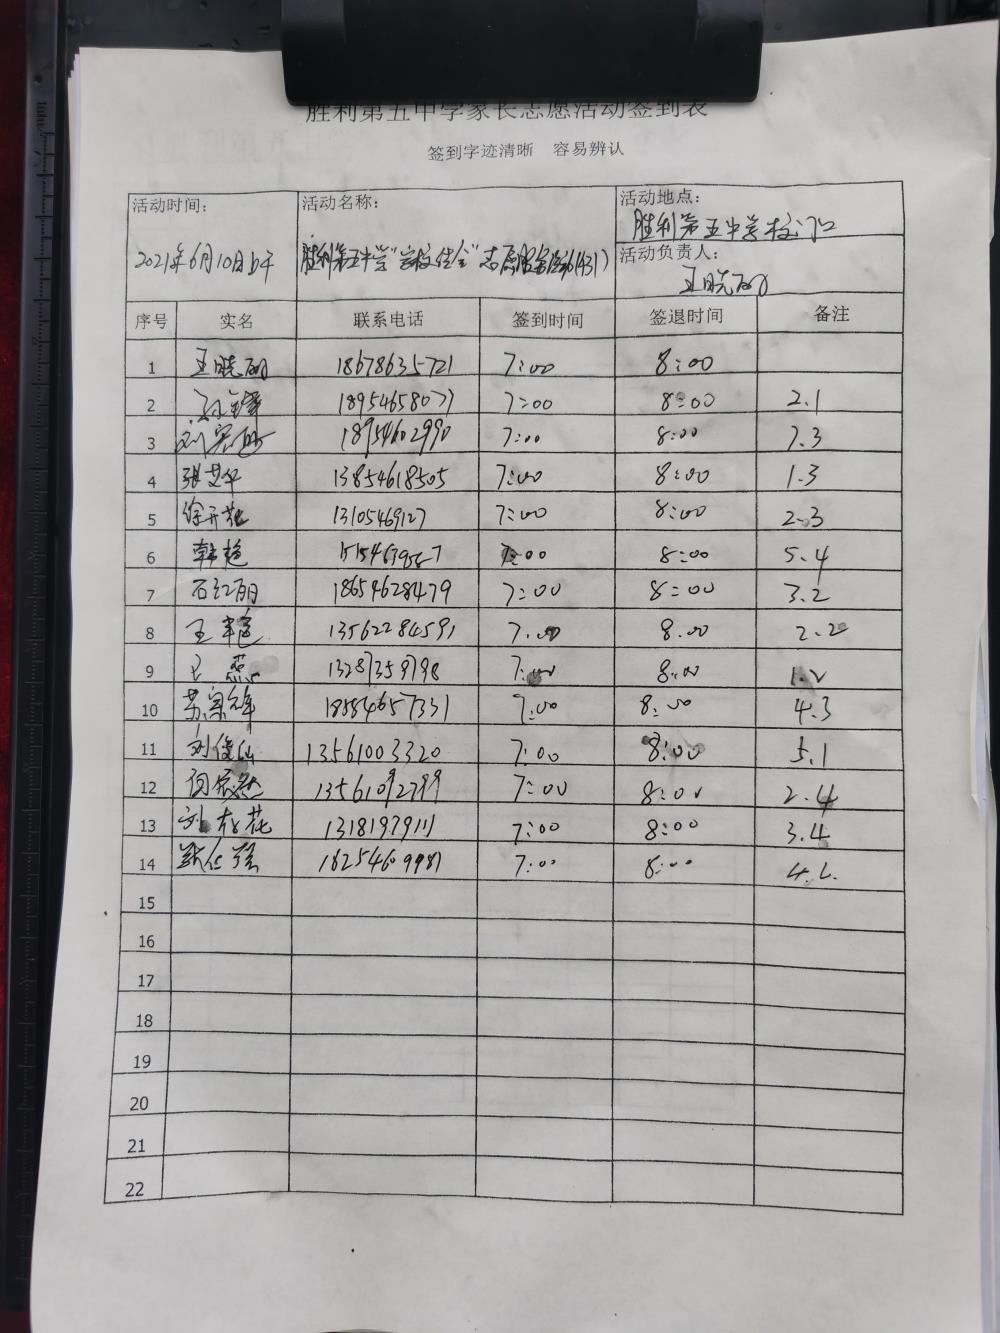 胜利第五中学家长志愿活动签到表
签到字迹清晰 容易辨认
活动时间: 活动名称: 活动地点:
胜利第五中学校门口
2021年6月10日上午 胜利第五中学"学校安全"志愿服务活动(431) 活动负责人:
王晓丽
序号 实名 联系电话 签到时间 签退时间 备注
1 王晓丽 18678635721 7:00 8:00
2 18954658077 7:00 8:00 2.1
3 刘 18954602990 7:00 8:00 7.3
4 张艾华 13854618505 7:00 8:00 1.3
5 徐开花 13105469127 7:00 8:00 2.3
6 韩艳 7:00 8:00 5.4
7 石红丽 18654628479 7:00 8:00 3.2
8 王 艳 13562284591 7.00 8.00 2.2
9 燕 13287359798 7:00 8:00 1.2
10 苏 18584657331 7:00 8:00 4.3
11 刘俊仙 13561003320 7:00 8:00 5.1
12 13561092799 7:00 8:00 2.4
13 刘 花 13181979111 7:00 8:00 3.4
14 18254609987 7:00 8:00
15
16
17
18
19
20
21
22